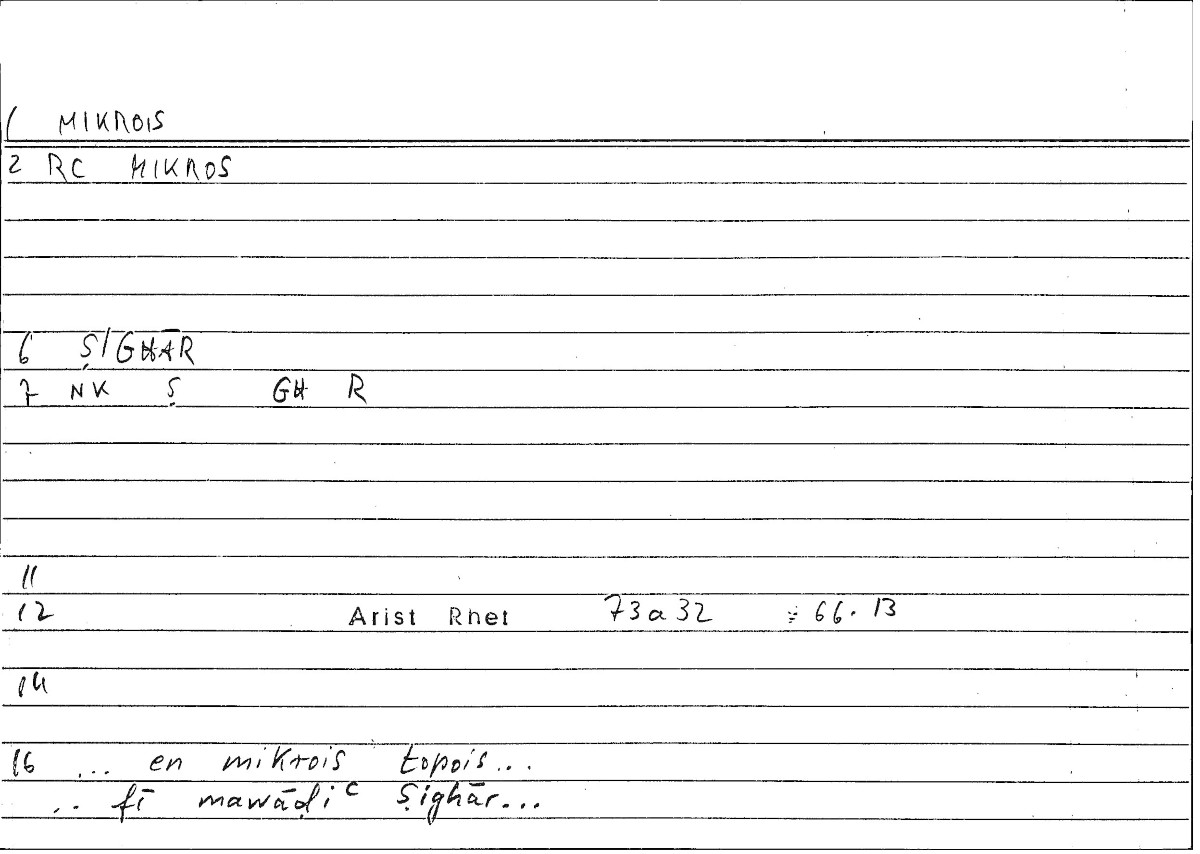 1 MIKROIS
2 RC MIKROS
6 ṢIGHĀR
7 NK Ṣ GH R
11
12 Arist Rhet 73a32 ÷ 66.13
14
16 ... en mikrois topois...
.. fī mawāḍiᶜ ṣighār...